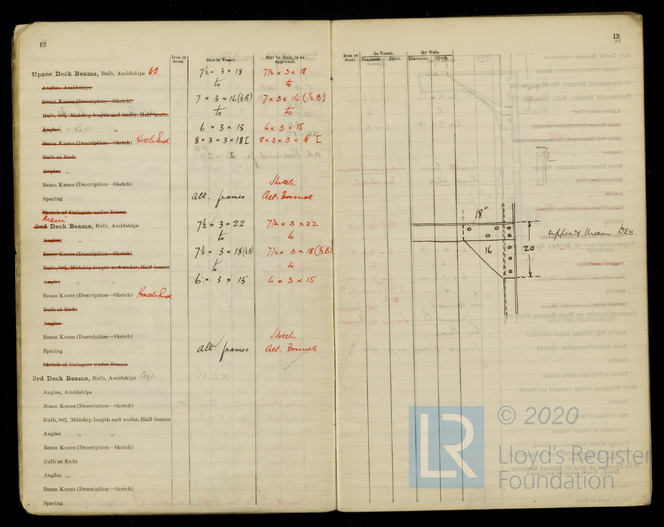 12
Iron or Steel.
Size in Vessel.
Size by Rule, or as approved.
Upper Deck Beams, Bulb, Amidships 7½ × 3 × 18 7½ × 3 × 18
Angles, Amidships to to
Beam Knees (Description—Sketch) 7 × 3 × 16 (½B) 7 × 3 × 16 (½B)
Bulb, 90% Midship length and under, Half beams to to
Angles 6 × 3 × 15 6 × 3 × 15
Beam Knees (Description—Sketch) 8 × 3 × 3 × 18 [ 8 × 3 × 3 × 18 [
Bulb at Ends
Angles „
Beam Knees (Description—Sketch) Sketch
Spacing Alt. frames Alt. Frames
Sketch of Stringers under Beams
Main
2nd Deck Beams, Bulb, Amidships 7½ × 3 × 22 7½ × 3 × 22
Angles, „ to to
Beam Knees (Description—Sketch) 7½ × 3 × 18 (½B) 7½ × 3 × 18 (½B)
Bulb, 90% Midship length and under, Half beams to to
Angles „ „ 6 × 3 × 15 6 × 3 × 15
Beam Knees (Description—Sketch)
Bulb at Ends
Angles
Beam Knees (Description—Sketch) Sketch
Spacing Alt. frames Alt. Frames
Sketch of Stringers under Beams
3rd Deck Beams, Bulb, Amidships
Angles, Amidships
Beam Knees (Description—Sketch)
Bulb, 90% Midship length and under, Half beams
Angles „ „
Beam Knees (Description—Sketch)
Bulb at Ends
Angles „
Beam Knees (Description—Sketch)
Spacing
13
Iron or Steel.
In Vessel.
By Rule.
Diameter.
18"
16
20
upper & Main Dks
© 2020
LR
Lloyd's Register
Foundation